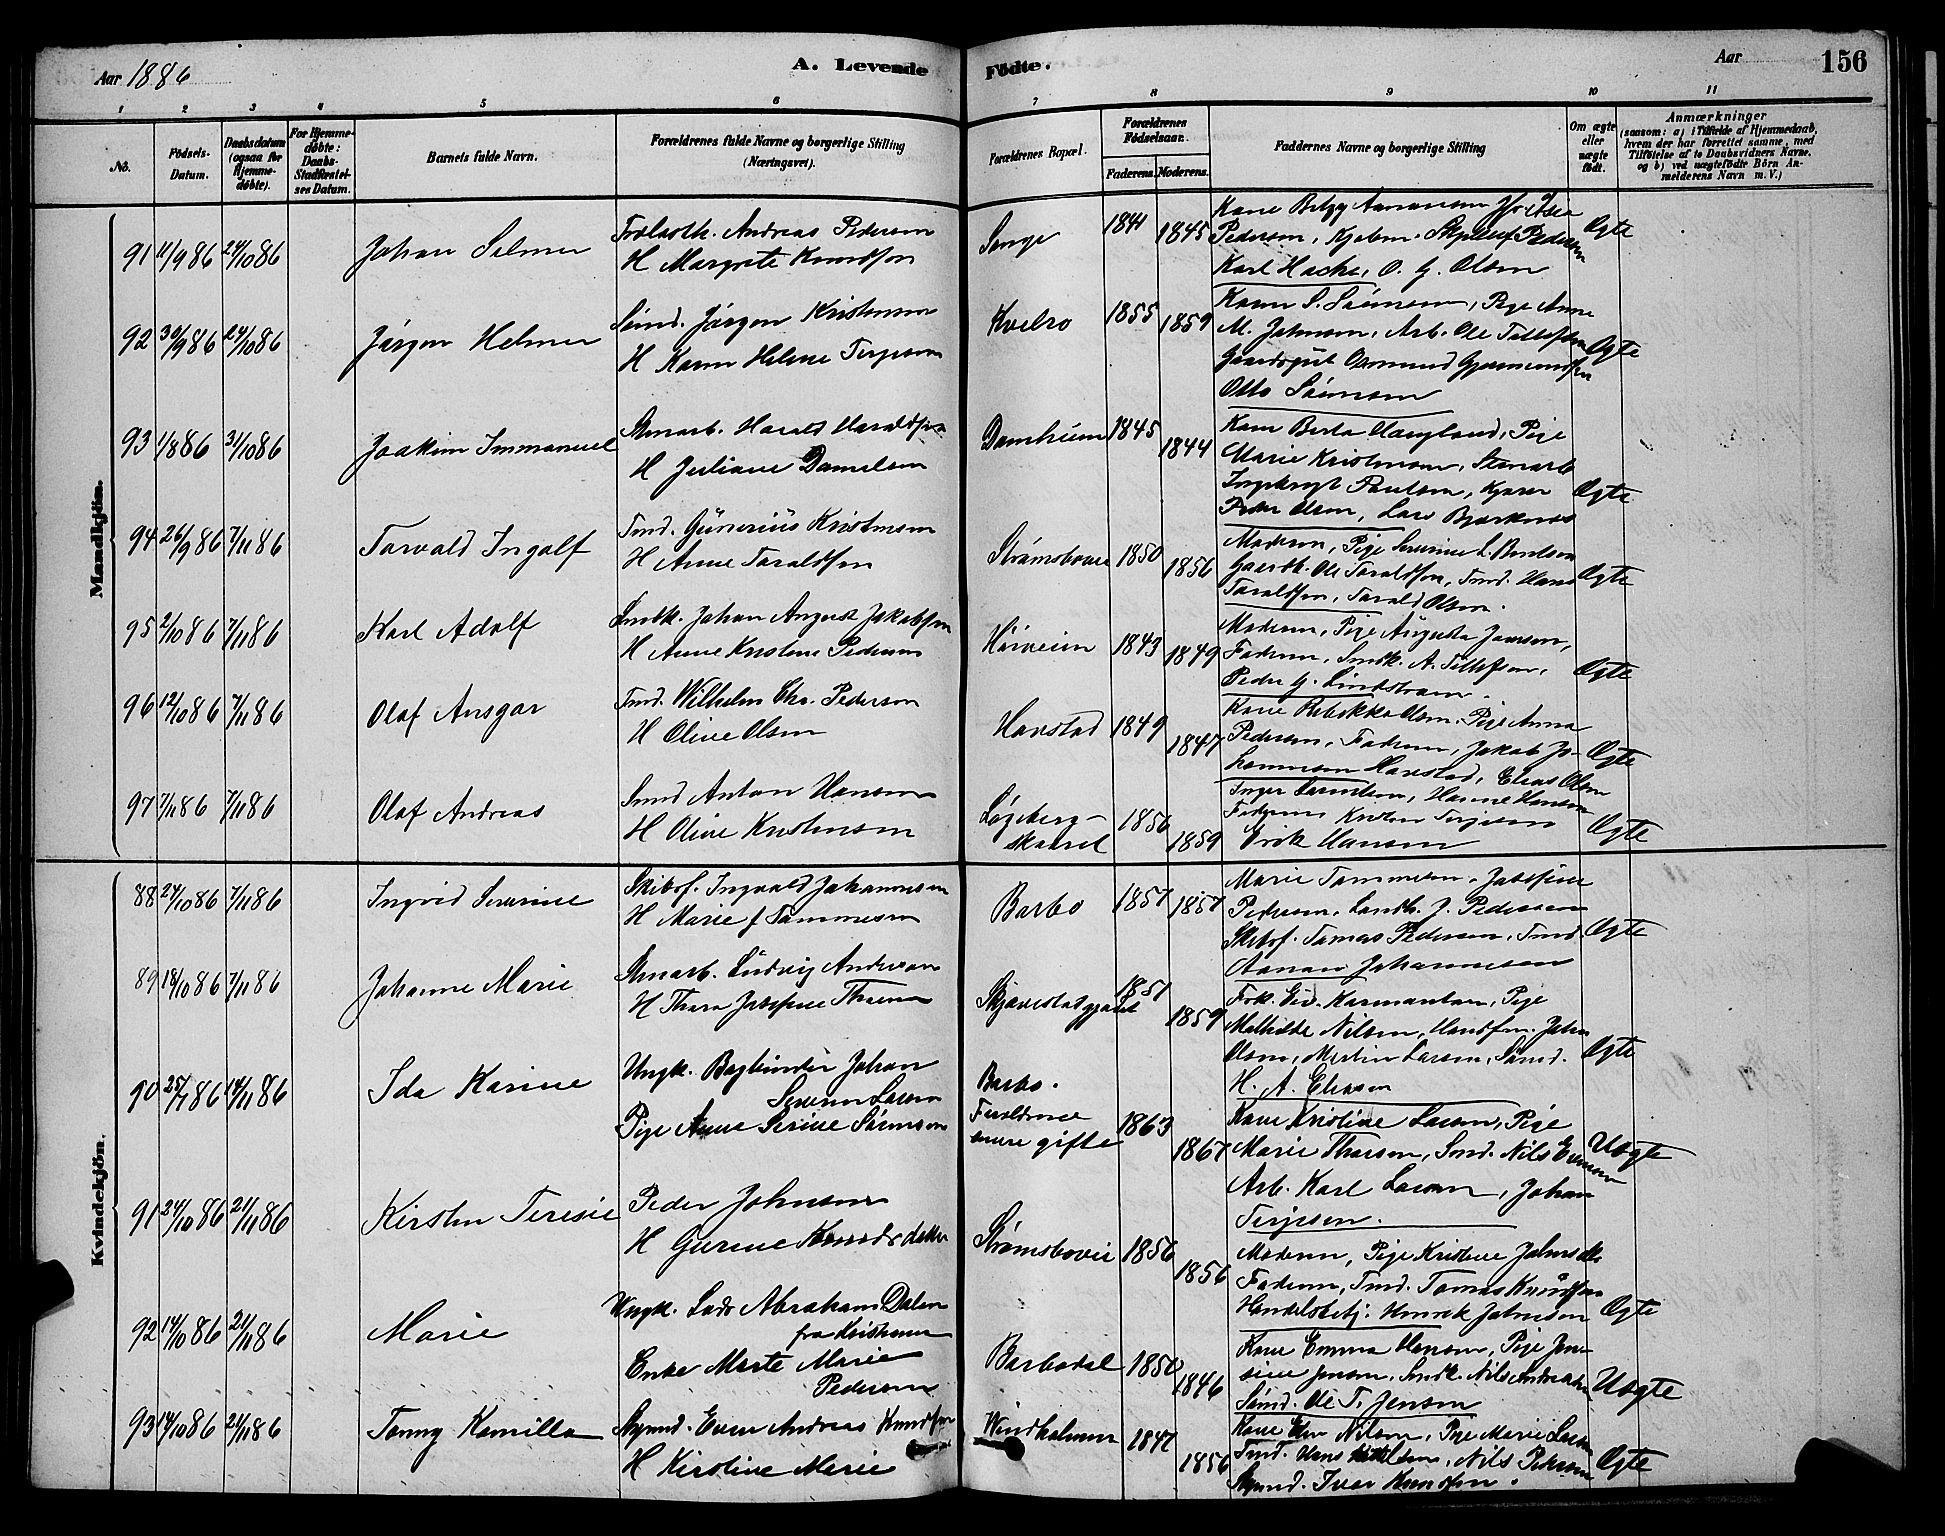 Aar 1886
A. Levende
Fødte.
Aar
156
1 2 3 4 5 6 7 8 9 10 11
No.
Fødsels-Datum.
Daabsdatum (ogsaa for Hjemme-døbte).
For Hjemme-døbte: Daabs-Stadfæstel-ses Datum.
Barnets fulde Navn.
Forældrenes fulde Navne og borgerlige Stilling (Næringsvei).
Forældrenes Bopæl.
Forældrenes Fødselsaar.
Faderens. Moderens.
Faddernes Navne og borgerlige Stilling
Om ægte eller uægte født.
Anmærkninger
(saasom: a) i Tilfælde af Hjemmedaab, hvem der har forrettet samme, med Tilføielse af to Daabsvidners Navne, og b) ved uægtefødte Børn An-melderens Navn m. V.)
Mandkjön.
91 11/9 86 24/10 86 Johan Selmer
Andreas Pedersen
H Margrete Knudsen
Songe 1841 1845
Karl Hacke, O. G. Olsen
Ægte
92 30/9 86 24/10 86 Jørgen Helmer
Sømd. Jørgen Kristensen
H Karen Helene Terjesen
Kvelro 1855 1859
Kone S. Sørensen, Pige Anne
M. Johnsen, Arb. Ole Tellefsen
Otto Sørensen
Ægte
93 1/8 86 31/10 86 Joakim Immanuel
Stenarb. Harald Haraldsen
H Juliane Danielsen
Damheim 1845 1844
Kone Berta Haugland, Pige
Marie Kristensen, Stenarb
Paulsen,
Peder Olsen, Lars Bjorknes
Ægte
94 26/9 86 7/11 86 Torvald Ingolf
Tmd. Gunerius Kristensen
H Anne Taraldsen
Strømsboveie 1850 1856
Moderen, Pige Severine L. Berntsen
Gaardb. Ole Taraldsen, Tmd. Hans
Taraldsen, Tarald Olsen.
Ægte
95 2/10 86 7/11 86 Karl Adolf
Johan August Jakobsen
H Anne Kristine Pedersen
1843 1849
Moderen, Pige Augusta Jensen,
Faderen, Smdk. A. Tellefsen,
Peder G. Lindstrøm.
Ægte
96 12/10 86 7/11 86 Olaf Ansgar
Tmd. Wilhelm Chr. Pedersen
H Olive Olsen
Havstad 1849 1847
Kone Rebekka Olsen. Pige Anna
Pedersen, Faderen, Jakob Jo-
hannesen Havstad, Elias Olsen
Ægte
97 7/11 86 7/11 86 Olaf Andreas
Smd Anton Hansen
H Olive Kristensen
Løgeberg-
skaaret 1856 1859
Hanne Hansen
Faderen Kristen Terjesen
Erik Hansen
Ægte
Kvindekjön.
88 24/10 86 7/11 86 Ingrid Severine
Skibsf. Ingvald Johannesen
H Marie f Tommesen
Barbo 1857 1857
Marie Tommesen, Josefine
Pedersen, J. Pedersen
Skibsf. Tomas Pedersen, Tmd
Aanon Johannesen
Ægte
89 18/10 86 7/11 86 Johanne Marie
Stenarb. Ludvig Andersen
H Thora Josefine
1851 1859
Pige
Mathilde Nilsen, Handfm. John
Olsen, Martin Larsen, Sømd.
H. A. Eliasen
Ægte
90 25/7 86 14/11 86 Ida Karine
Ungk. Bogbinder Johan
Severin Larsen
Pige Anne Serine Sørensen
Barbo.
Forældrene
senere gifte 1863 1867
Kone Kristine Larsen, Pige
Marie Thorsen, Sømd. Nils Evensen
Arb. Karl Larsen, Johan
Terjesen.
Uægte
91 24/10 86 21/11 86 Kirsten Teresie
Peder Johnsen
H Gurine Knudsdatter
Strømsboveie 1856 1856
Moderen, Pige Kristine Johnsdtr
Faderen, Tmd. Tomas Knudsen
Handelsbetj. Henrik Johnsen
Ægte
92 14/10 86 21/11 86 Marie
Ungk. Lods Abraham Dalen
fra Kristiansn
Enke Marte Marie
Pedersen
Barbodal 1850 1846
Kone Emma Hansen, Pige Jen-
sine Jensen, Smdk. Nils Andreasen
Sømd. Ole T. Jensen
Uægte
93 14/10 86 21/11 86 Tonny Kamilla
Skpmd. Even Andreas Knudsen
H Kirstine Marie
Windholmen 1847 1856
Kone Nilsen, Pige Marie Larsen
Tmd. Hans Nilsen, Nils Pedersen
Skpmd. Ivar Knudsen.
Ægte